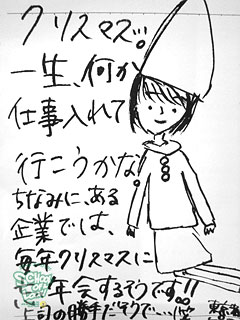 クリスマス。
一生、何か
仕事入れて
行こうかな
ちなみに、ある
企業では、
毎年クリスマスに
年会するそうです!!
上司の勝手だそうで…(笑